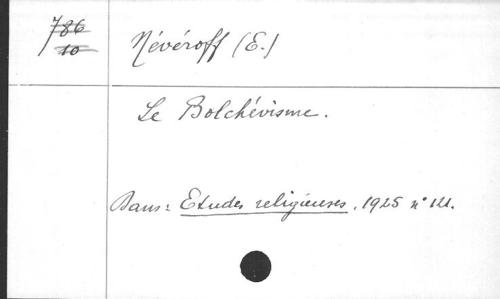 786
10
Névéroff (E.)
Le Bolchévisme.
Dans: Etudes religieuses, 1925 n° 121.